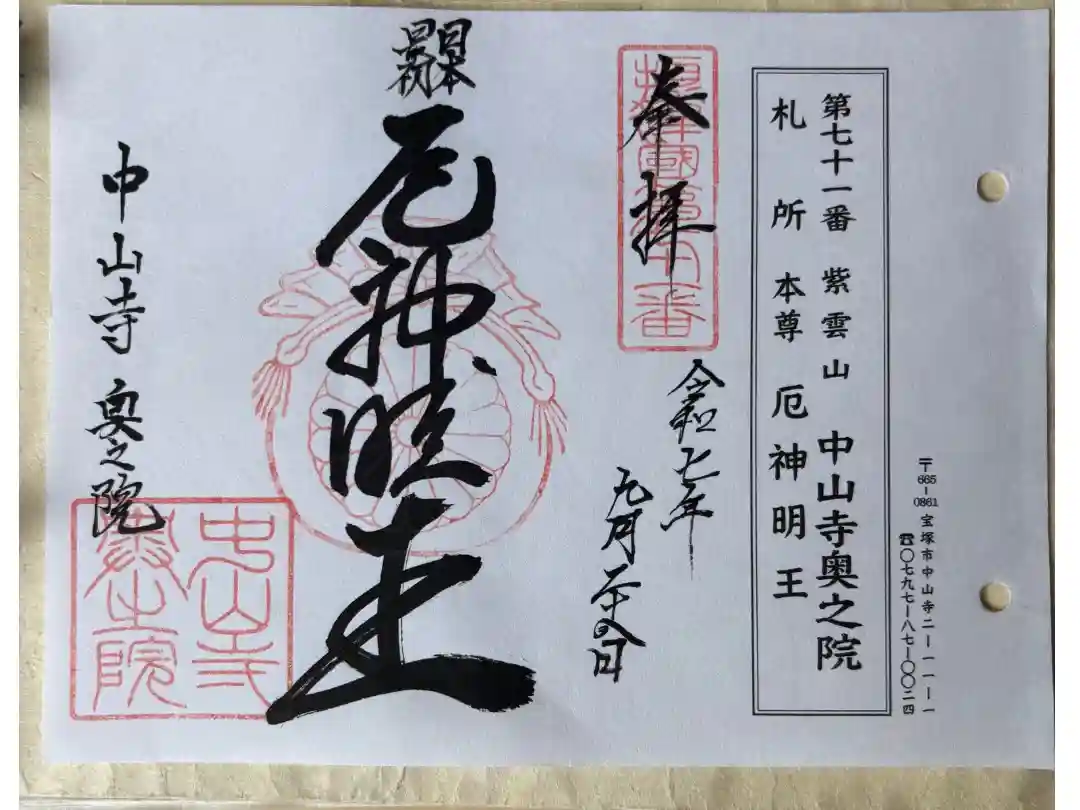 〒665-0861 宝塚市中山寺二-一一-一
☎〇七九七-八七-〇〇二四
第七十一番 紫雲山 中山寺奥之院
札所 本尊 厄神明王
奉拝
攝津國第七十一番
令和七年
九月二十八日
日本
最初
厄神明王
中山寺 奥之院
中山寺
奥之院